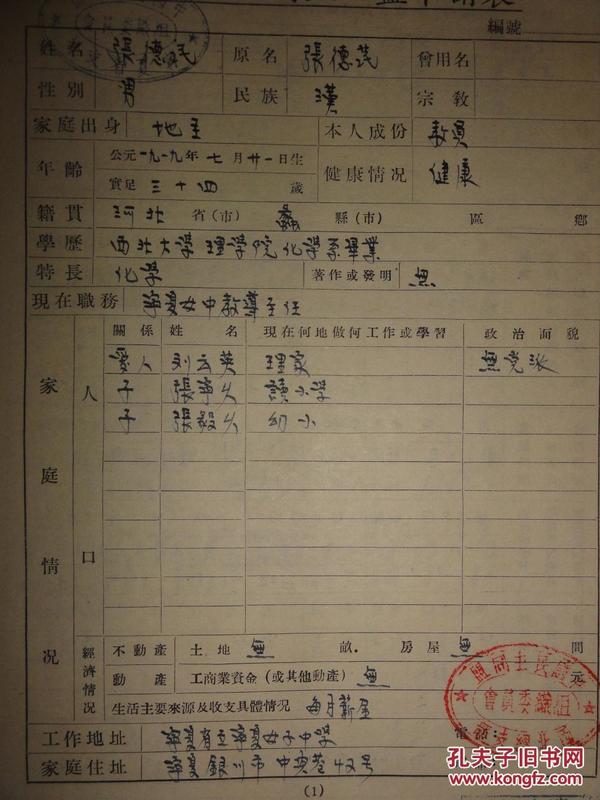 盟申請表
編號
姓名 張德茂 原名 張德茂 曾用名
性別 男 民族 漢 宗教
家庭出身 地主 本人成份 教員
年齡 公元一九一九年七月廿一日生 健康情况 健康
實足 三十四 歲
籍貫 河北 省(市) 蠡 縣(市) 區 鄉
學歷 西北大學理學院化學系畢業
特長 化學 著作或發明 無
現在職務 寧夏女中教導主任
家庭情况
人口
關係 姓名 現在何地做何工作或學習 政治面貌
愛人 刘云英 理家 無党派
子 張爭久 讀小學
子 張毅久 幼小
經濟情况
不動產 土地 無 畝 房屋 無 間
動產 工商業資金(或其他動產) 無 元
生活主要來源及收支具體情况 每月薪金
工作地址 寧夏省立寧夏女子中學 電話
家庭住址 寧夏銀川市中央巷42号
(1)
盟同主民國
會員委織組
孔夫子旧书网
www.kongfz.com